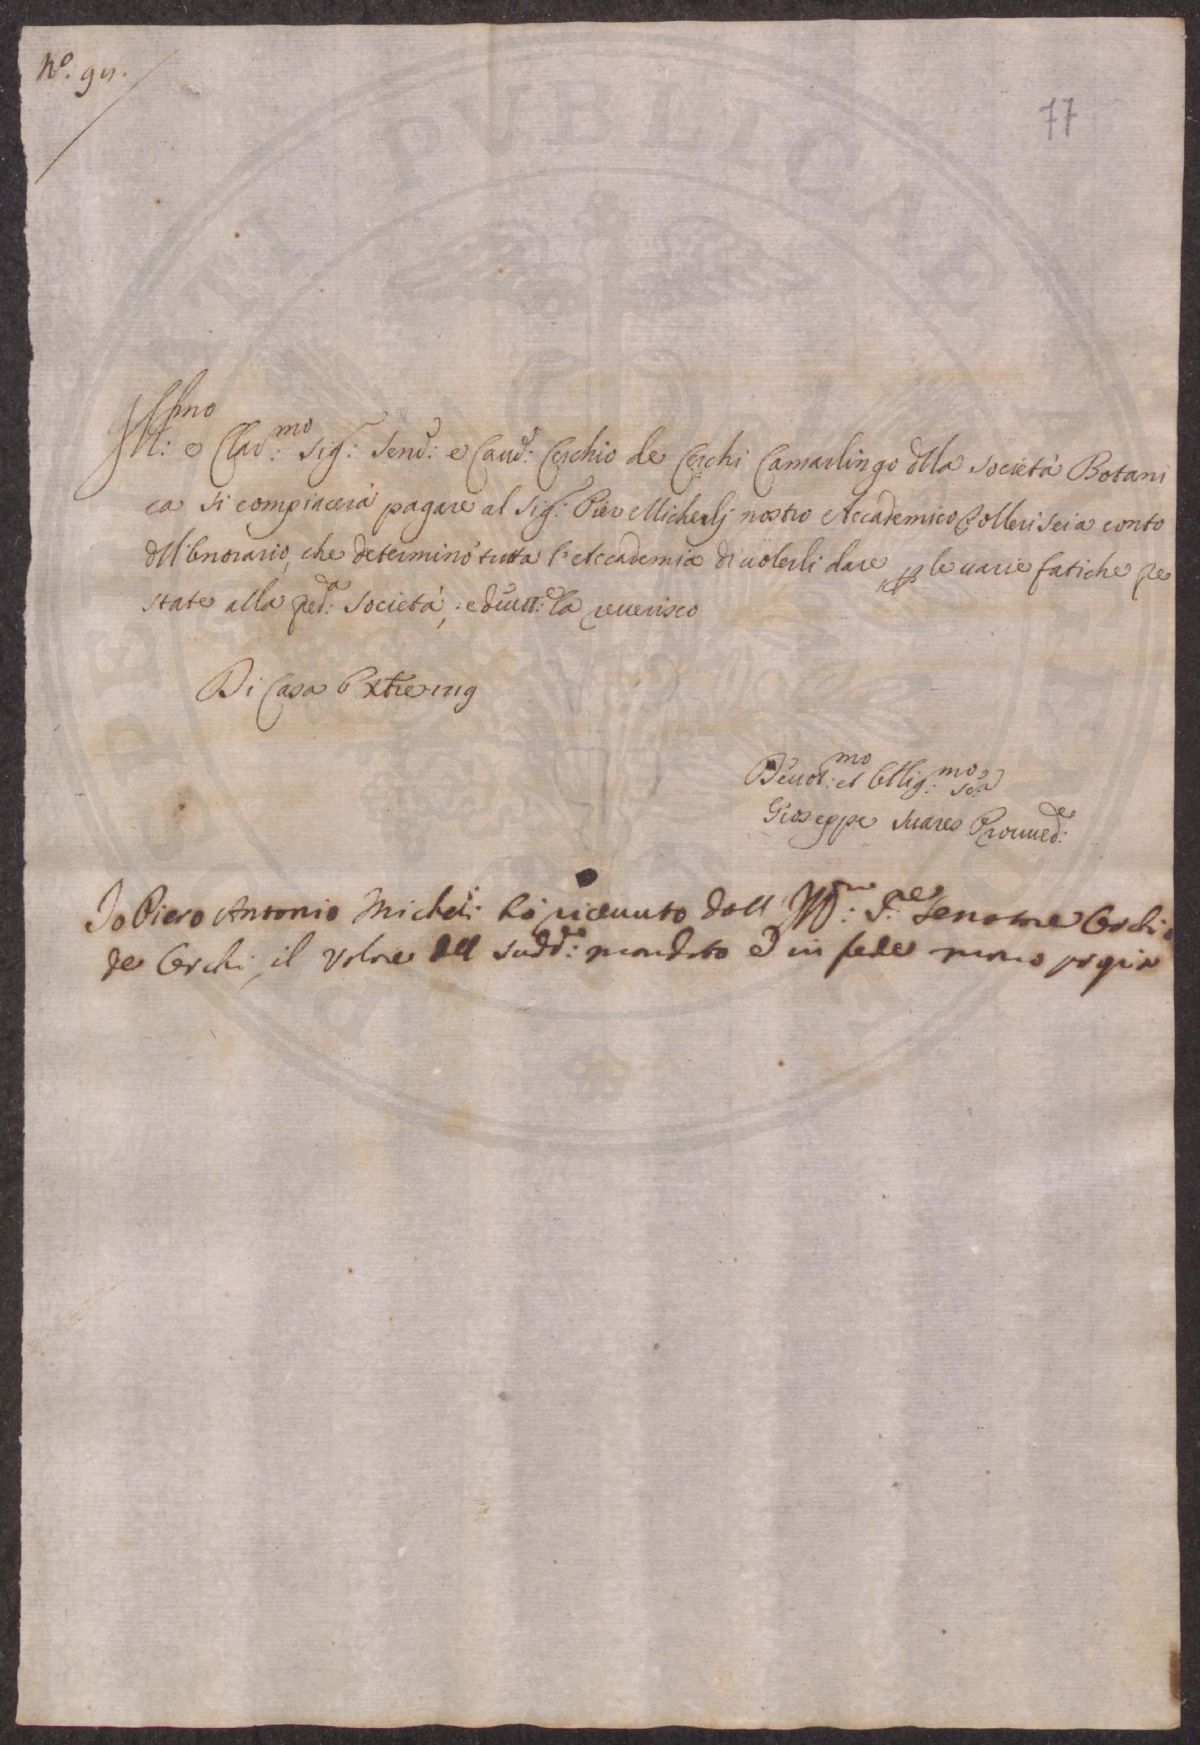 N.º 9
77
Ill:mo e Clar:mo Sig: Send: e Cavd: Cerchio de Cerchi Camarlingo dlla Società Botani
ca si compiacerà pagare al Sig: Pier Michelj nostro Accademico Zolleri seia conto
dll'Onorario, che determinò tutta l'Accademia di volerli dare, p le varie fatiche pre
state alla pred:a Società, e la reverisco
Di Casa
Devot:mo et Obblig:mo Ser:
Giuseppe Suares Provved:e
Io Piero Antonio Micheli: hò ricevuto dall Ill:mo S:re Senatore Cerchio
de Cerchi, il valore dell sudd:o mandato e in fede mano propria